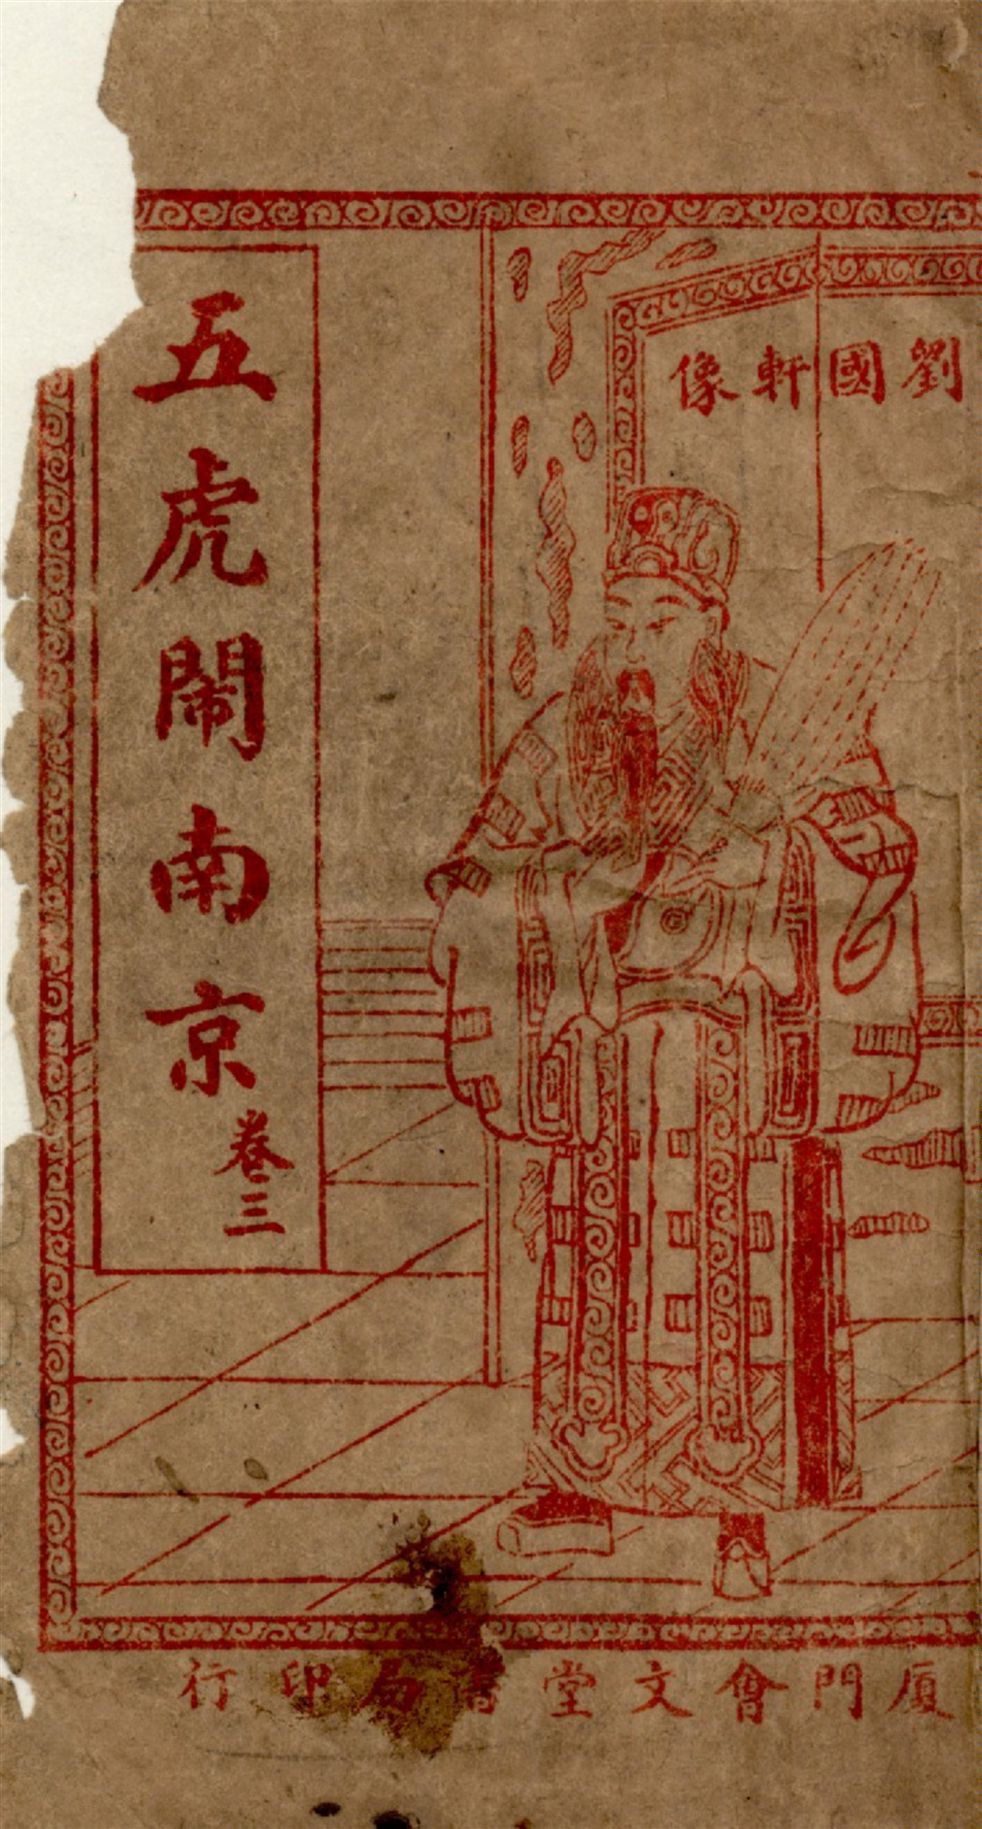 劉國軒像
五虎鬧南京
卷三
厦門會文堂書局印行